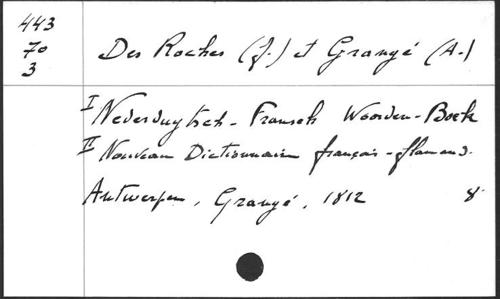 443
70
3
Des Roches (J.) et Grangé (A.)
I Nederduytsch - Fransch Woorden-Boek
II Nouveau Dictionnaire français-flamand.
Antwerpen, Grangé, 1812 8°